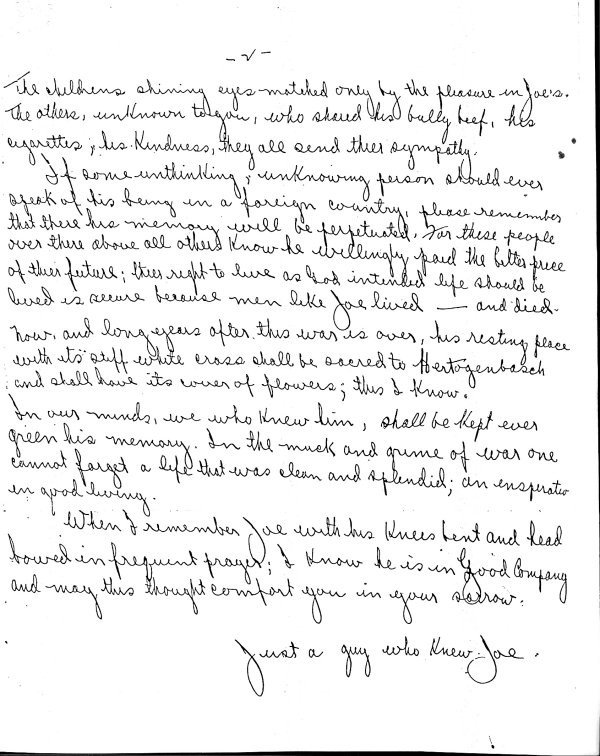 - 2 -
The childrens shining eyes matched only by the pleasure in Joe's.
The others, unknown to you, who shared his bully beef, his
cigarettes; his kindness, they all send thier sympathy.
If some unthinking, unknowing person should ever
speak of his being in a foreign country, please remember
that there his memory will be perpetuated. For these people
over there above all others know he willingly paid the bitter price
of thier future; thier right to live as God intended life should be
lived is secure because men like Joe lived — and died.
Now, and long years after this war is over, his resting place
with its stiff white cross shall be sacred to Hertogenbosch
and shall have its cover of flowers; this I know.
In our minds, we who knew him, shall be kept ever
green his memory. In the muck and grime of war one
cannot forget a life that was clean and splendid; an
in good living.
When I remember Joe with his knees bent and head
bowed in frequent prayer; I know he is in Good Company
and may this thought comfort you in your sorrow.
Just a guy who knew Joe.